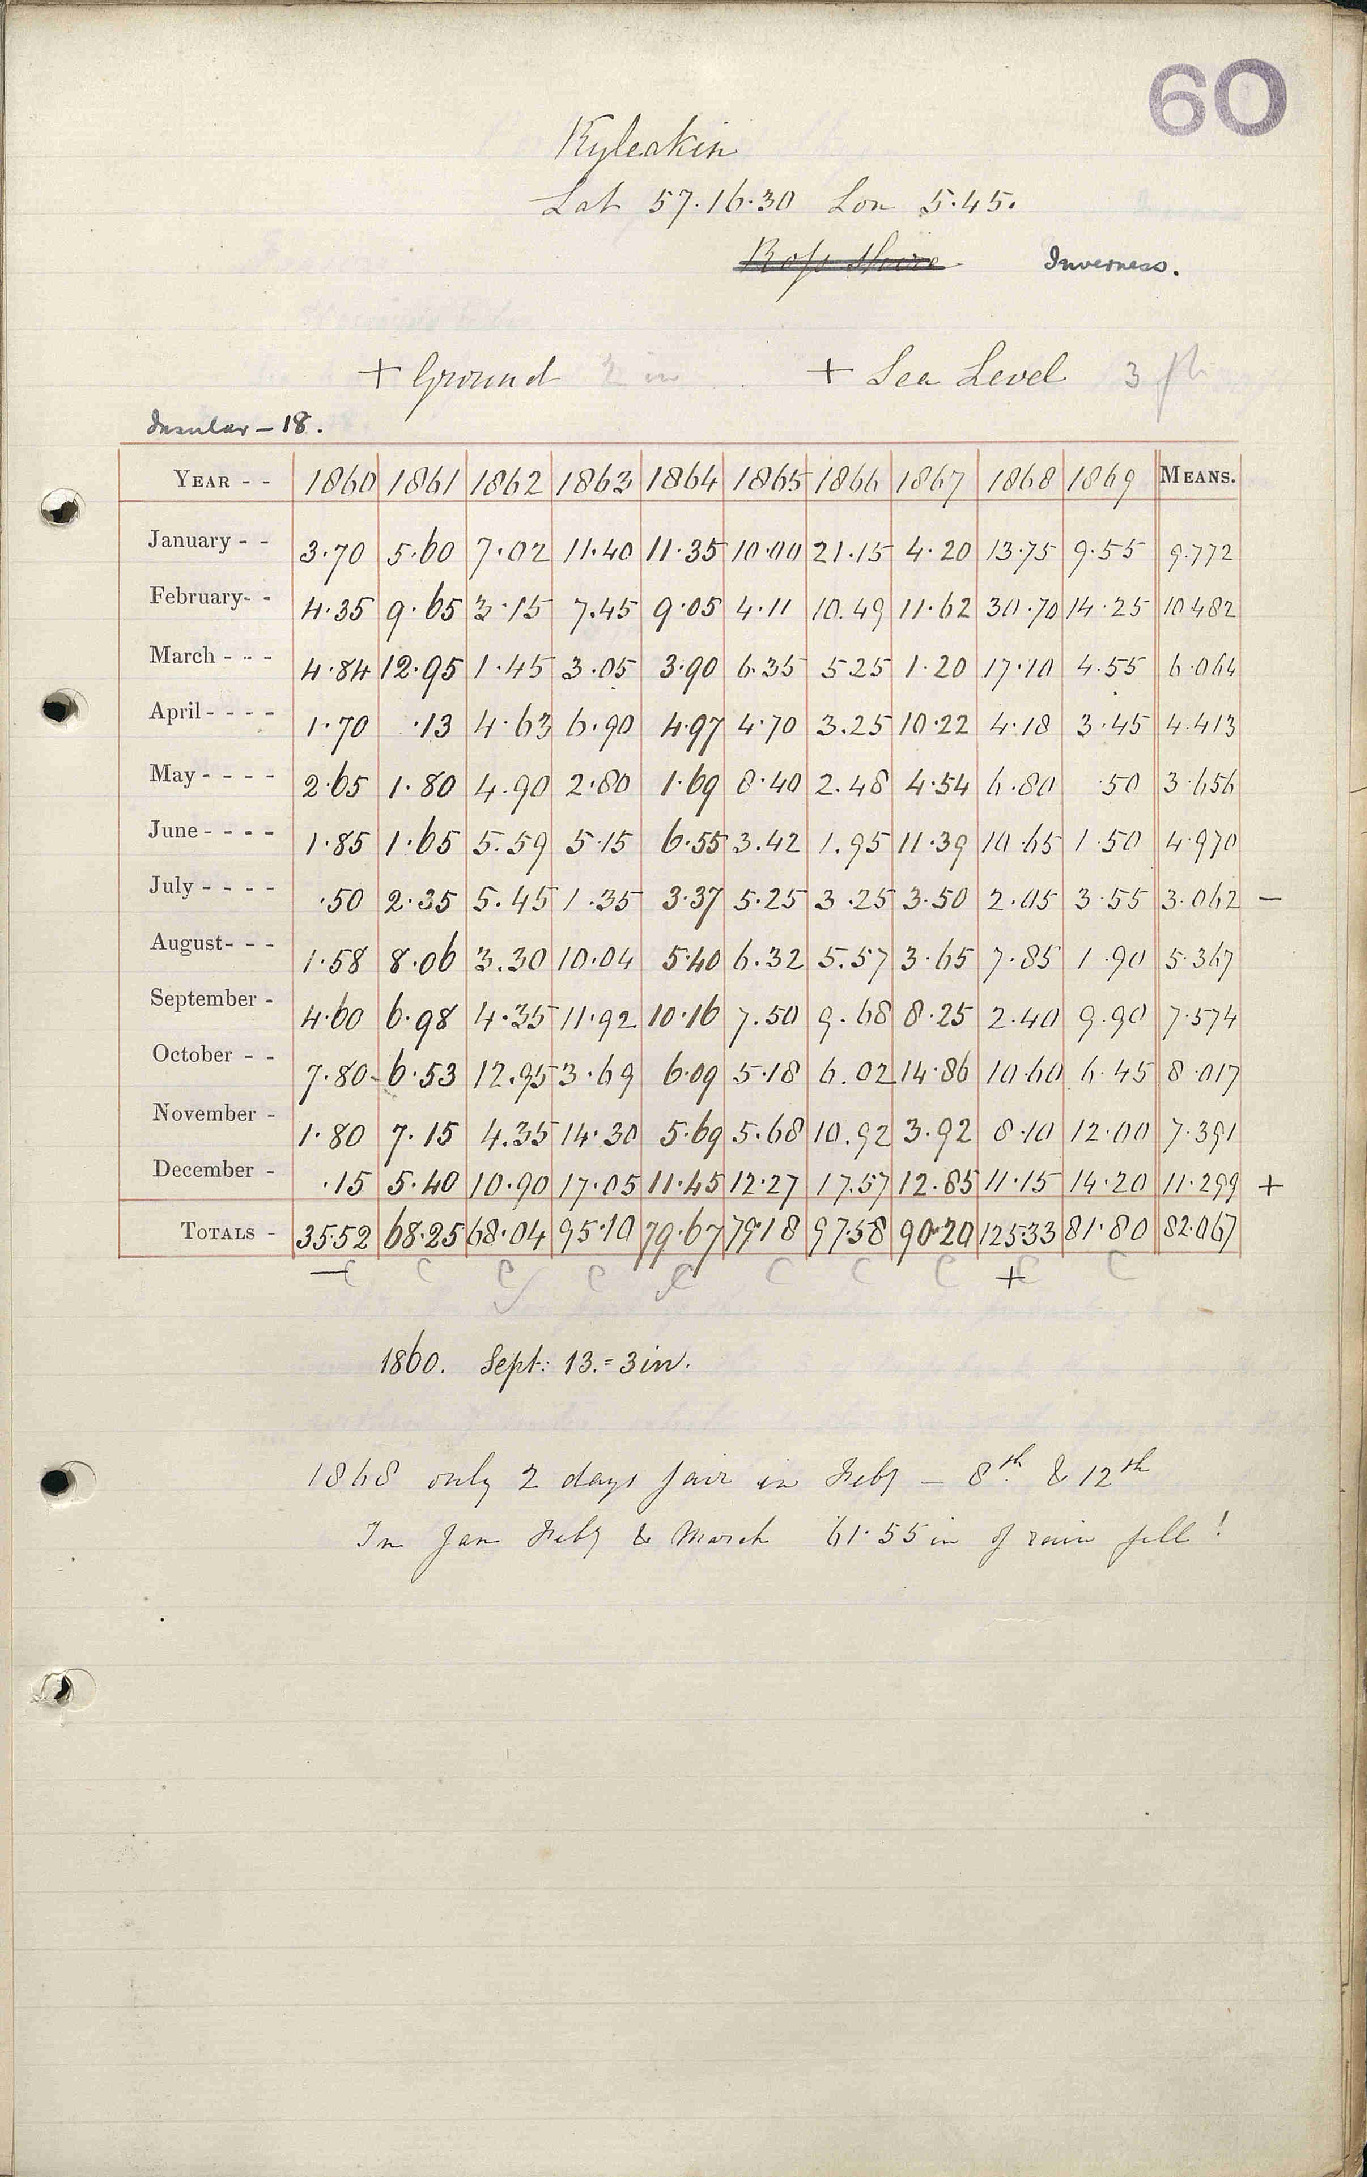 60
Kyleakin
Lat 57.16.30 Lon 5.45.
Ross Shire Inverness.
+ Ground 2 in + Sea Level 3 ft
Insular - 18.
YEAR - - 1860 1861 1862 1863 1864 1865 1866 1867 1868 1869 MEANS.
January - - 3.70 5.60 7.02 11.40 11.35 10.00 21.15 4.20 13.75 9.55 9.772
February- - 4.35 9.65 3.15 7.45 9.05 4.11 10.49 11.62 30.70 14.25 10.482
March - - - 4.84 12.95 1.45 3.05 3.90 6.35 5.25 1.20 17.10 4.55 6.064
April - - - - 1.70 .13 4.63 6.90 4.97 4.70 3.25 10.22 4.18 3.45 4.413
May - - - - 2.65 1.80 4.90 2.80 1.69 8.40 2.48 4.54 6.80 .50 3.656
June - - - - 1.85 1.65 5.59 5.15 6.55 3.42 1.95 11.39 10.65 1.50 4.970
July - - - - .50 2.35 5.45 1.35 3.37 5.25 3.25 3.50 2.05 3.55 3.062 -
August- - - 1.58 8.06 3.30 10.04 5.40 6.32 5.57 3.65 7.85 1.90 5.367
September - 4.60 6.98 4.35 11.92 10.16 7.50 9.68 8.25 2.40 9.90 7.574
October - - 7.80 6.53 12.95 3.69 6.09 5.18 6.02 14.86 10.60 6.45 8.017
November - 1.80 7.15 4.35 14.30 5.69 5.68 10.92 3.92 8.10 12.00 7.391
December - .15 5.40 10.90 17.05 11.45 12.27 17.57 12.85 11.15 14.20 11.299 +
TOTALS - 35.52 68.25 68.04 95.10 79.67 79.18 97.58 90.20 125.33 81.80 82.067
- c c c c c c c c + c c
1860. Sept: 13.=3in.
1868 only 2 days fair in Feby - 8th & 12th
In Jan Feby & March 61.55 in of rain fell!